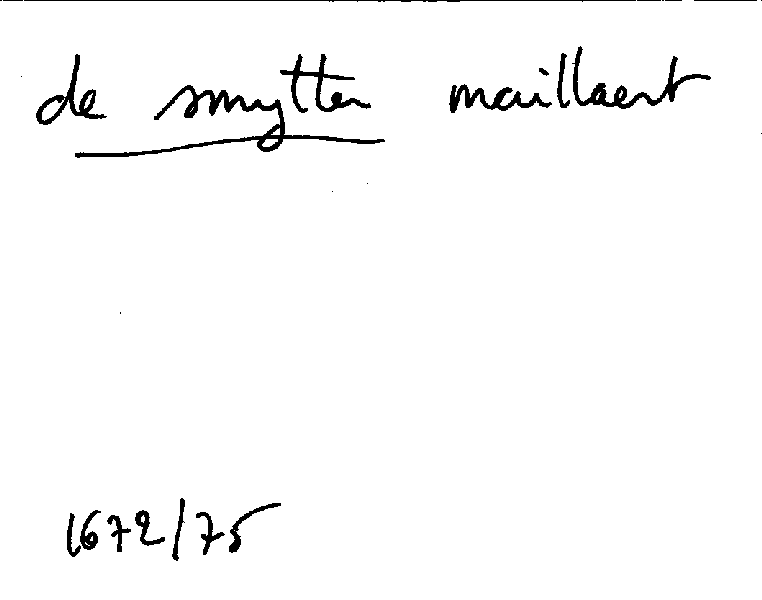 de smytter maillaert
1672/75